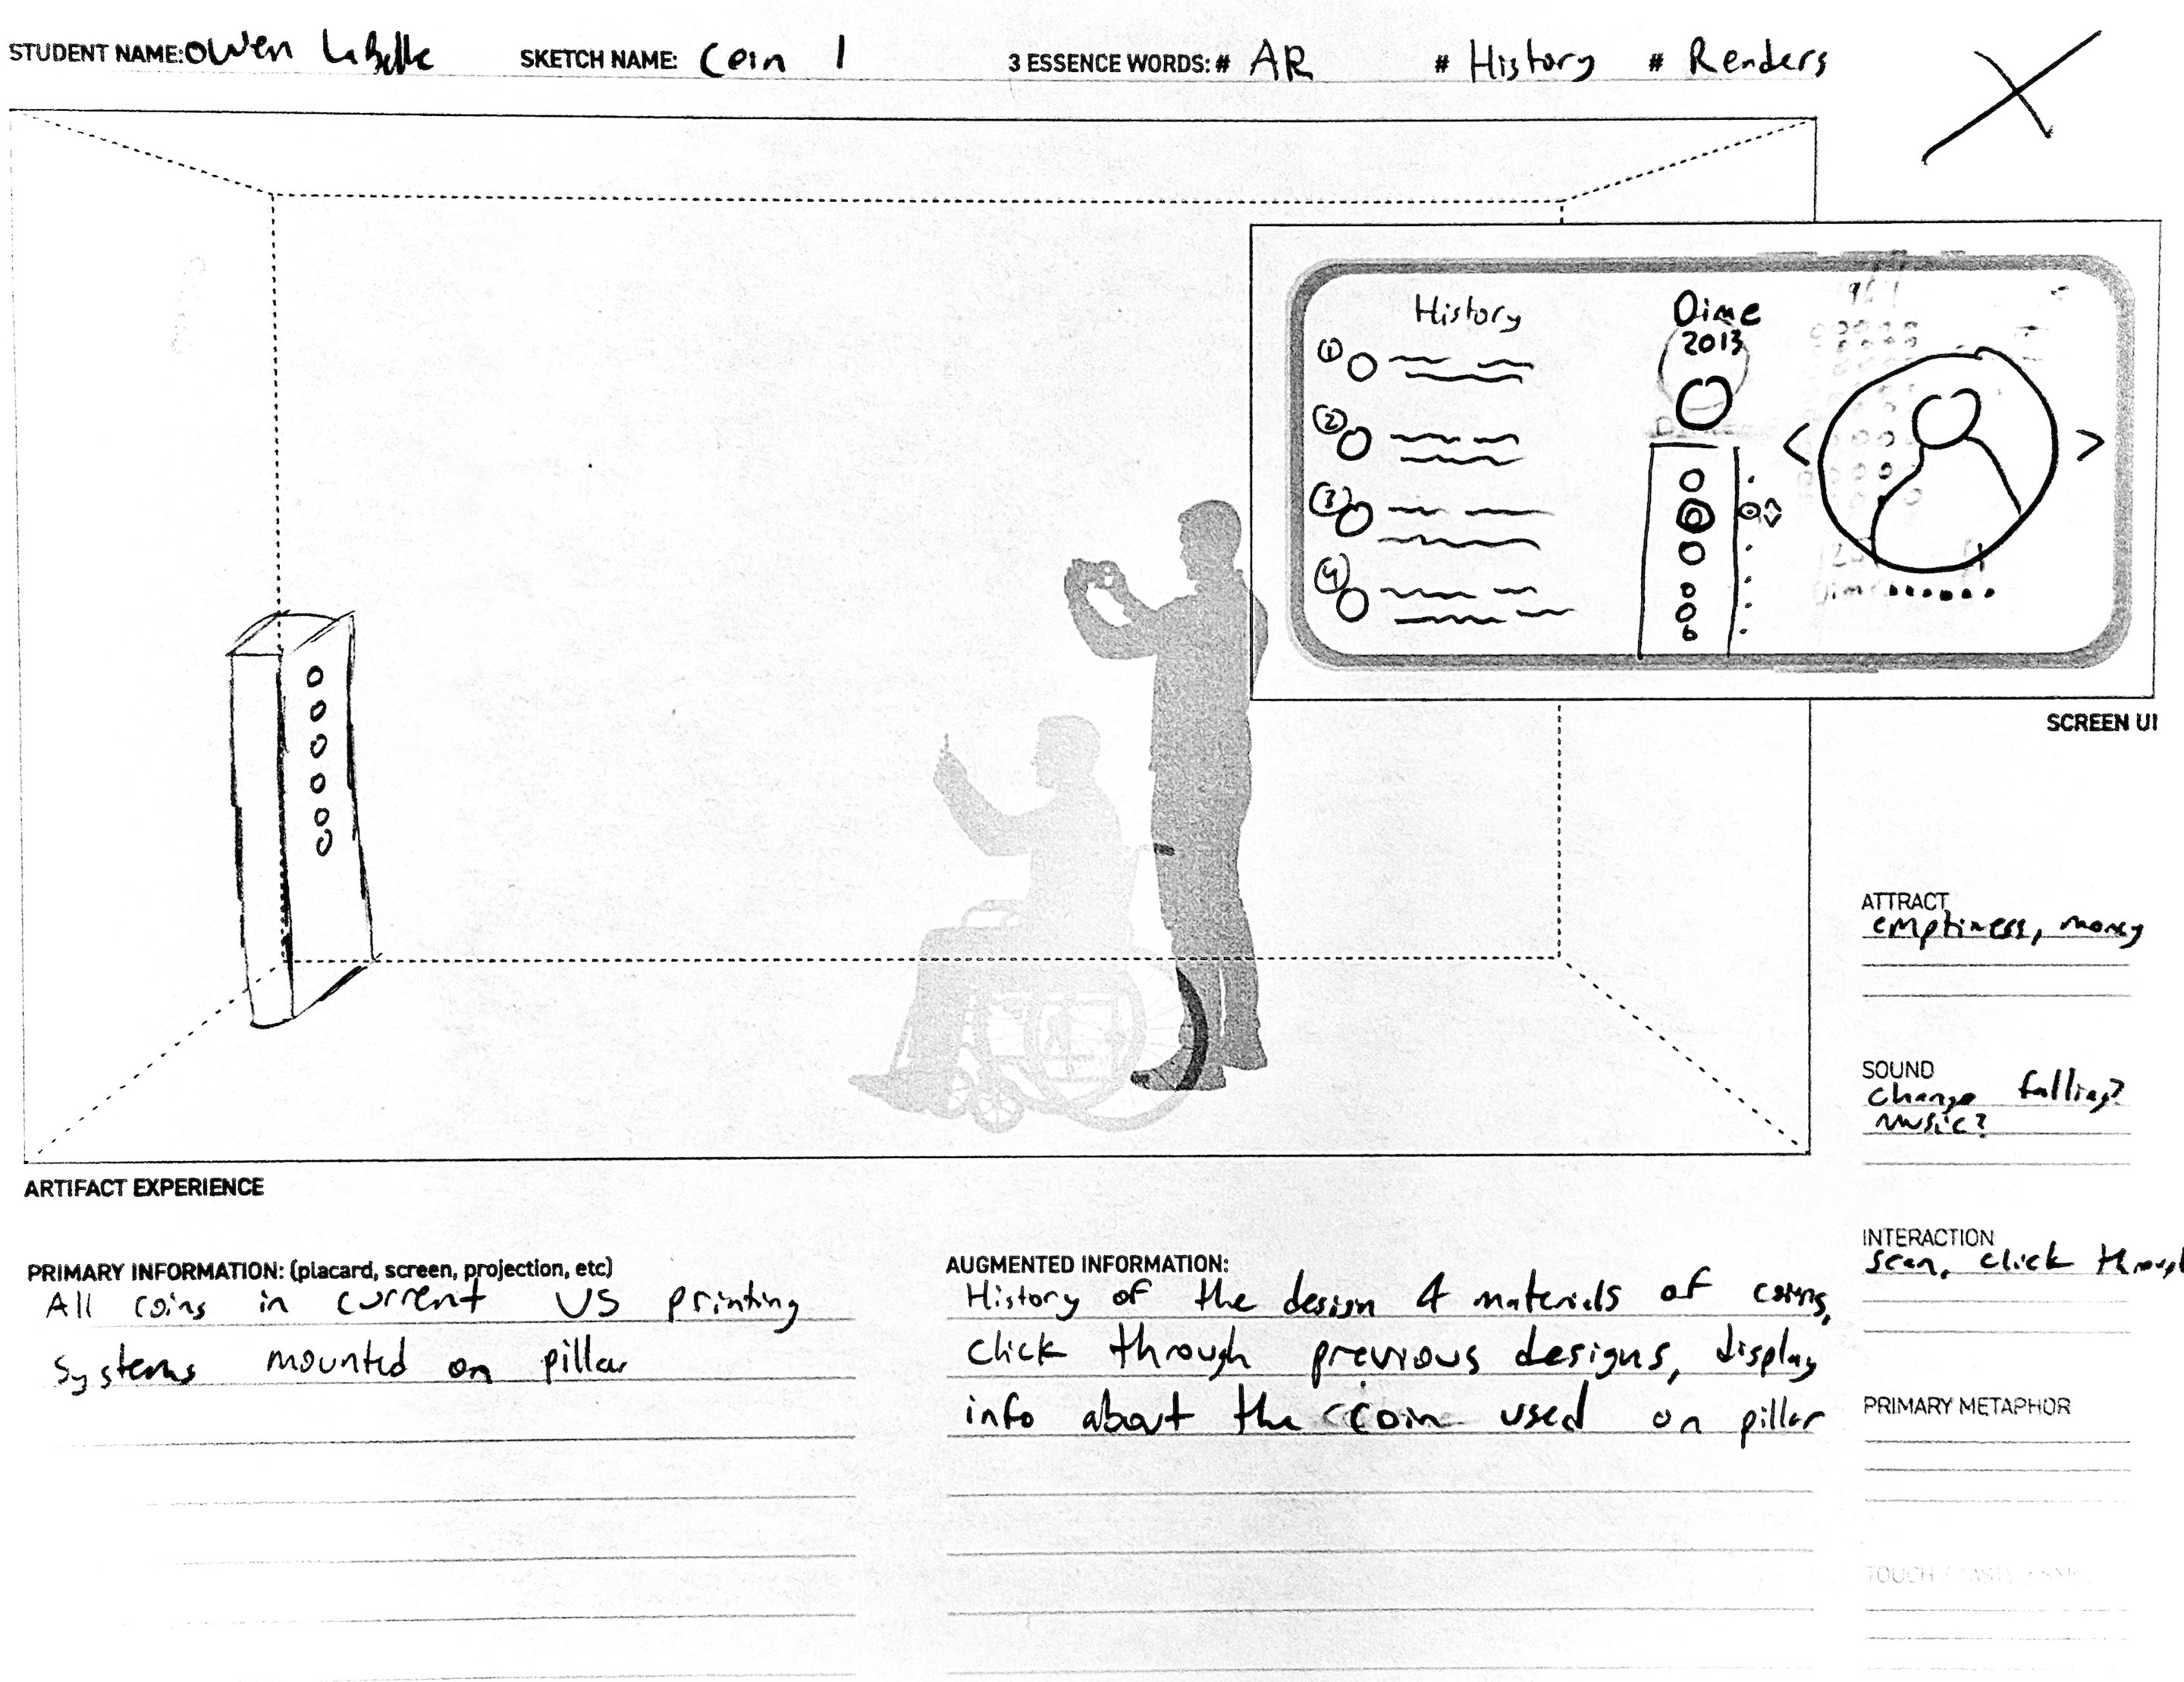 STUDENT NAME: Owen LaBelle SKETCH NAME: Coin 1 3 ESSENCE WORDS: # AR # History # Renders
History
Dime
2013
1
2
3
4
< >
SCREEN UI
ATTRACT
emptiness, money
SOUND
change falling?
music?
INTERACTION
scan, click through
ARTIFACT EXPERIENCE
PRIMARY INFORMATION: (placard, screen, projection, etc)
All coins in current US printing
systems mounted on pillar
AUGMENTED INFORMATION:
History of the design & materials of coins,
click through previous designs, display
info about the coin used on pillar
PRIMARY METAPHOR